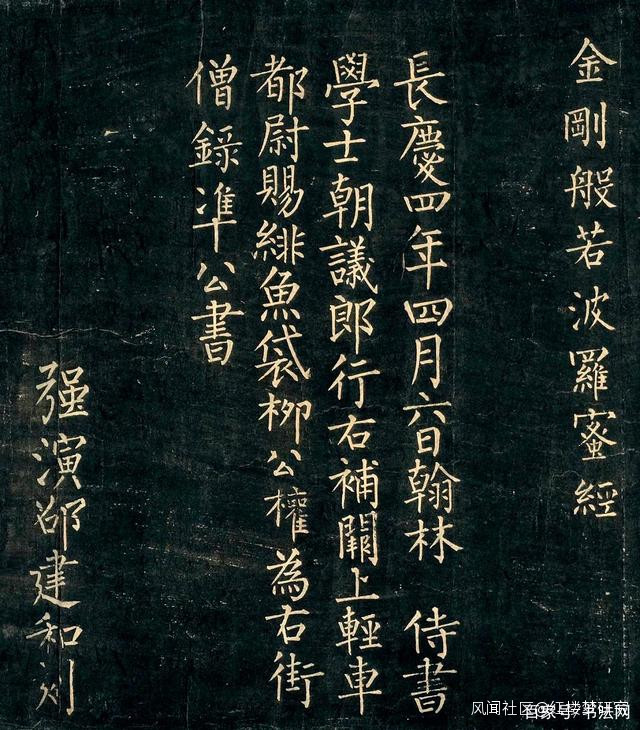 金剛般若波羅蜜經
長慶四年四月六日翰林 侍書
學士朝議郎行右補闕上輕車
都尉賜緋魚袋柳公權為右街
僧錄準公書
强演邵建和刻
风闻社区@红楼梦研究
百家号/书法网